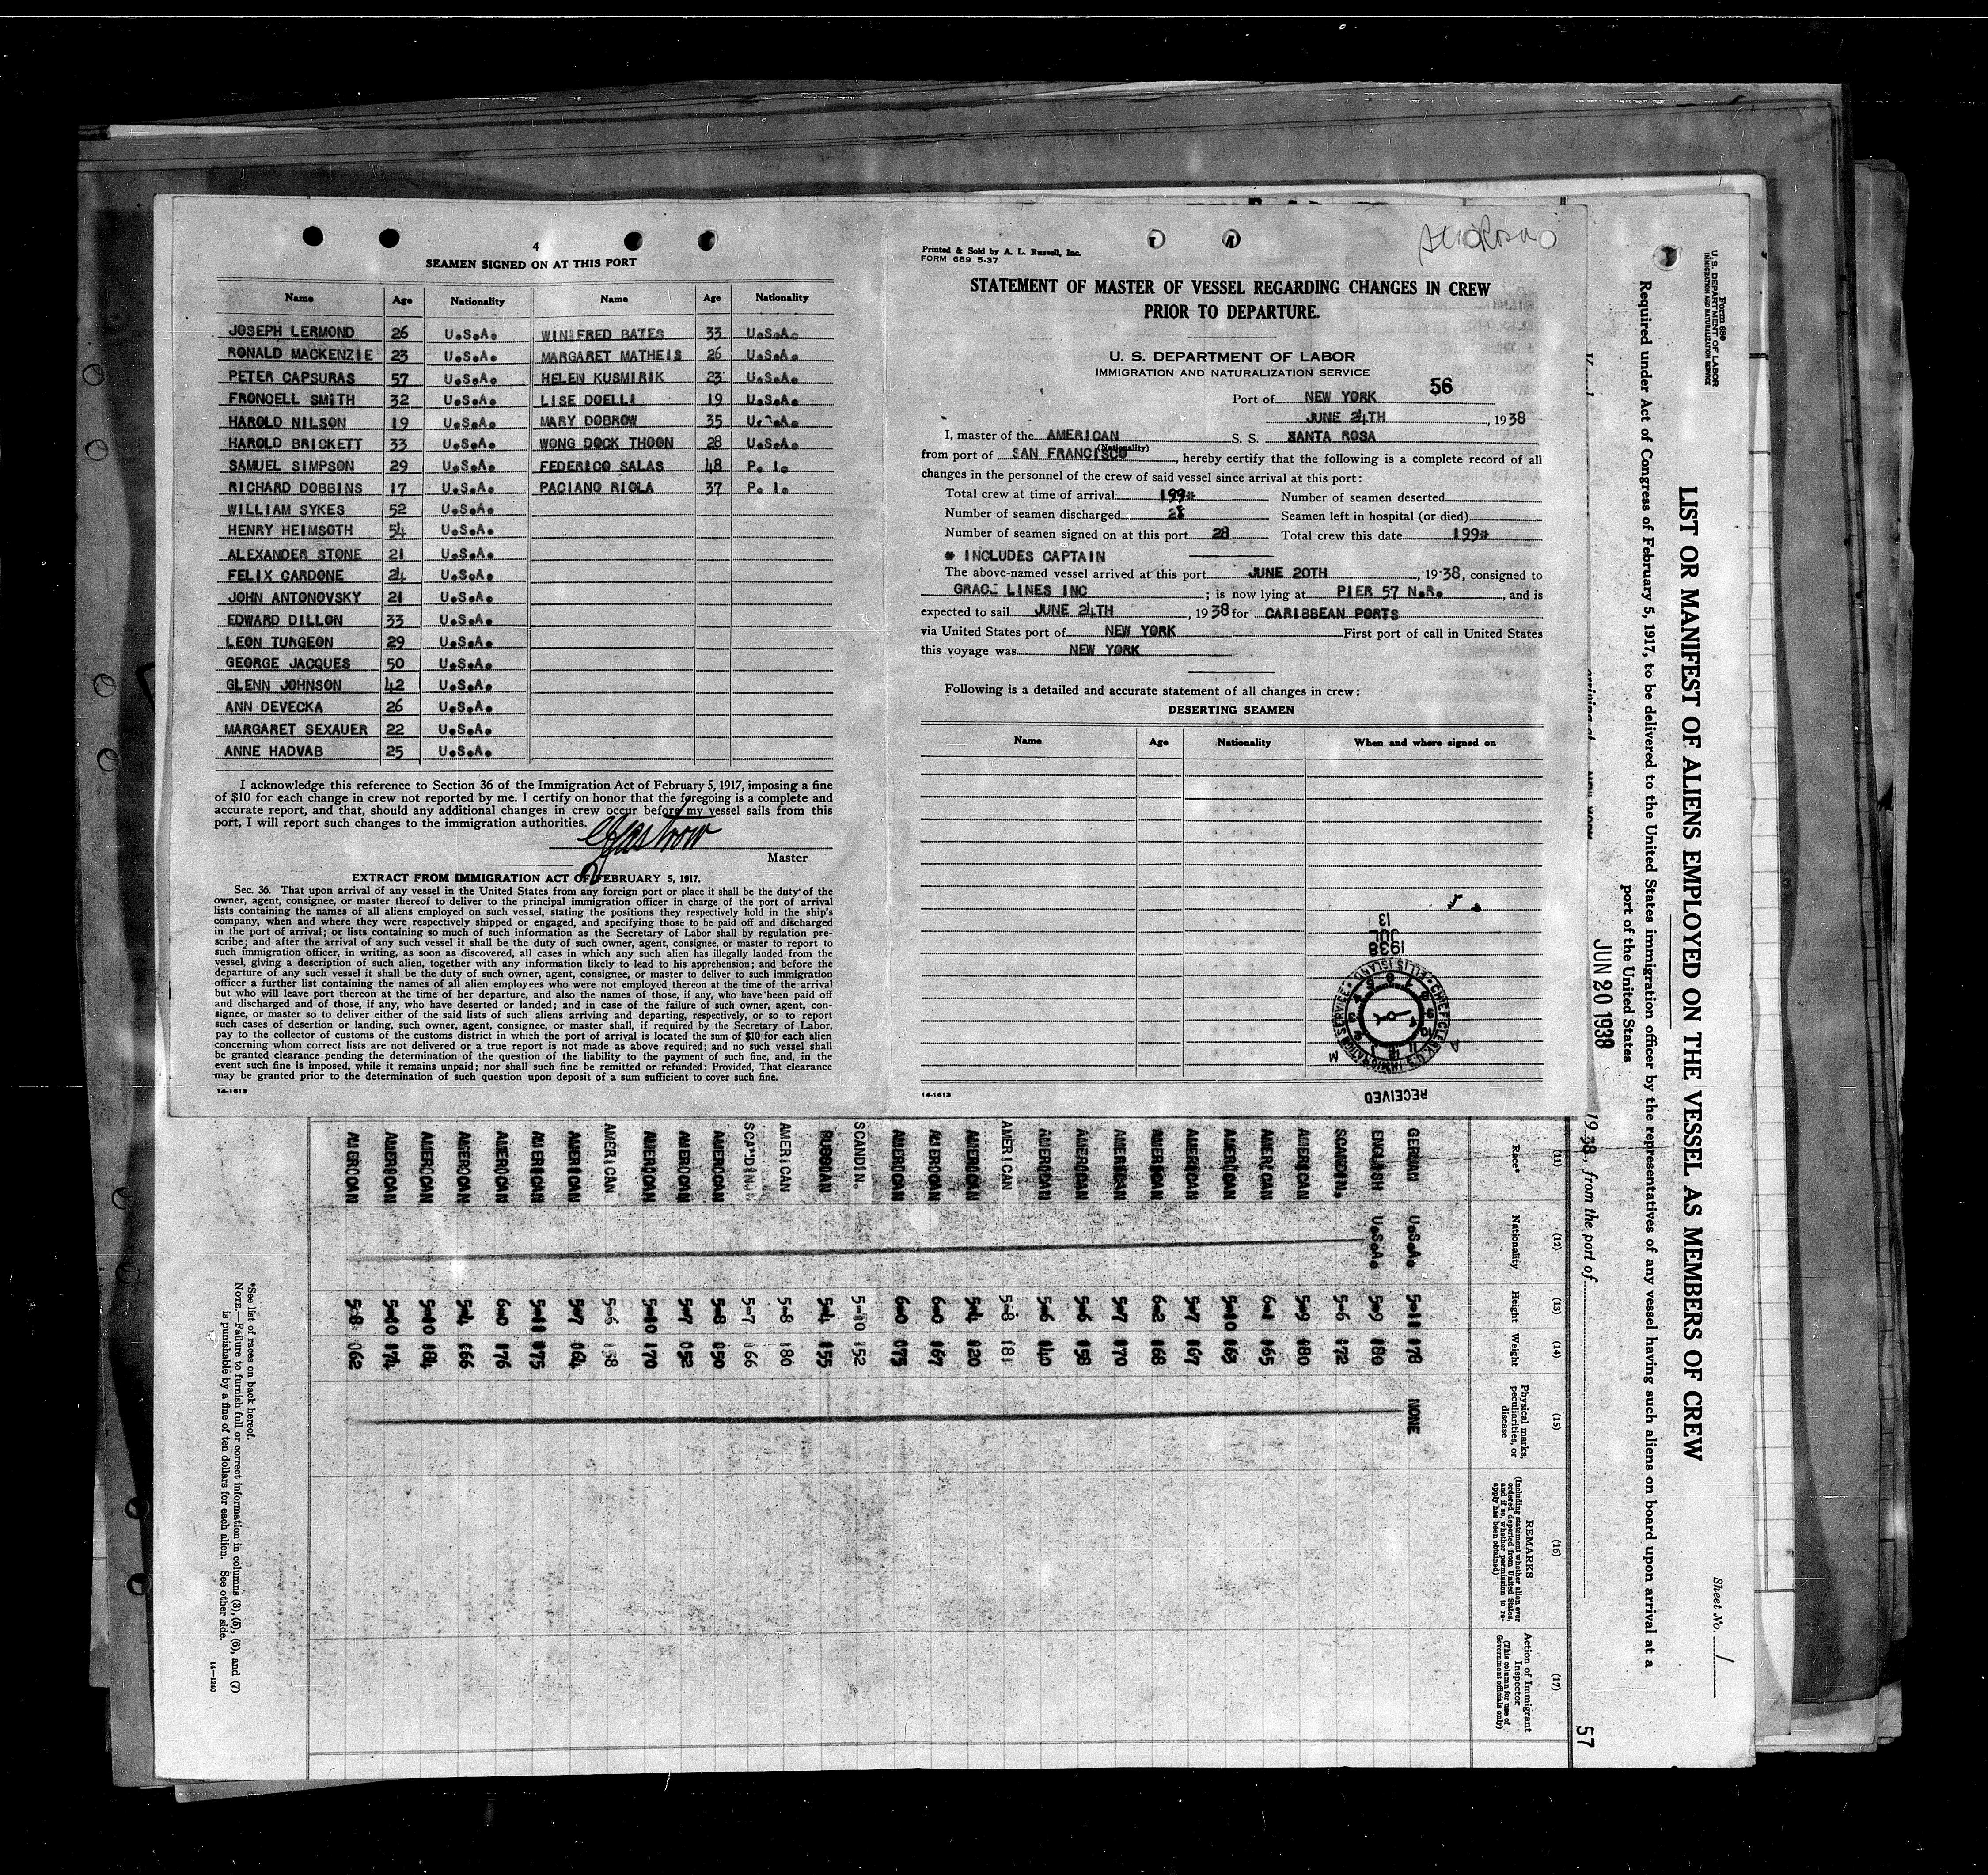 4
SEAMEN SIGNED ON AT THIS PORT
Name Age Nationality Name Age Nationality
JOSEPH LERMOND 26 U.S.A. WINIFRED BATES 33 U.S.A.
RONALD MACKENZIE 23 U.S.A. MARGARET MATHEIS 26 U.S.A.
PETER CAPSURAS 57 U.S.A. HELEN KUSMIRIK 23 U.S.A.
FRONCELL SMITH 32 U.S.A. LISE DOELLI 19 U.S.A.
HAROLD NILSON 19 U.S.A. MARY DOBROW 35 U.S.A.
HAROLD BRICKETT 33 U.S.A. WONG DOCK THOON 28 U.S.A.
SAMUEL SIMPSON 29 U.S.A. FEDERICO SALAS 48 P. I.
RICHARD DOBBINS 17 U.S.A. PACIANO RIOLA 37 P. I.
WILLIAM SYKES 52 U.S.A.
HENRY HEIMSOTH 54 U.S.A.
ALEXANDER STONE 21 U.S.A.
FELIX CARDONE 24 U.S.A.
JOHN ANTONOVSKY 21 U.S.A.
EDWARD DILLON 33 U.S.A.
LEON TURGEON 29 U.S.A.
GEORGE JACQUES 50 U.S.A.
GLENN JOHNSON 42 U.S.A.
ANN DEVECKA 26 U.S.A.
MARGARET SEXAUER 22 U.S.A.
ANNE HADVAB 25 U.S.A.
I acknowledge this reference to Section 36 of the Immigration Act of February 5, 1917, imposing a fine
of $10 for each change in crew not reported by me. I certify on honor that the foregoing is a complete and
accurate report, and that, should any additional changes in crew occur before my vessel sails from this
port, I will report such changes to the immigration authorities.
Master
EXTRACT FROM IMMIGRATION ACT OF FEBRUARY 5, 1917.
Sec. 36. That upon arrival of any vessel in the United States from any foreign port or place it shall be the duty of the
owner, agent, consignee, or master thereof to deliver to the principal immigration officer in charge of the port of arrival
lists containing the names of all aliens employed on such vessel, stating the positions they respectively hold in the ship's
company, when and where they were respectively shipped or engaged, and specifying those to be paid off and discharged
in the port of arrival; or lists containing so much of such information as the Secretary of Labor shall by regulation pre-
scribe; and after the arrival of any such vessel it shall be the duty of such owner, agent, consignee, or master to report to
such immigration officer, in writing, as soon as discovered, all cases in which any such alien has illegally landed from the
vessel, giving a description of such alien, together with any information likely to lead to his apprehension; and before the
departure of any such vessel it shall be the duty of such owner, agent, consignee, or master to deliver to such immigration
officer a further list containing the names of all alien employees who were not employed thereon at the time of the arrival
but who will leave port thereon at the time of her departure, and also the names of those, if any, who have been paid off
and discharged and of those, if any, who have deserted or landed; and in case of the failure of such owner, agent, con-
signee, or master so to deliver either of the said lists of such aliens arriving and departing, respectively, or so to report
such cases of desertion or landing, such owner, agent, consignee, or master shall, if required by the Secretary of Labor,
pay to the collector of customs of the customs district in which the port of arrival is located the sum of $10 for each alien
concerning whom correct lists are not delivered or a true report is not made as above required; and no such vessel shall
be granted clearance pending the determination of the question of the liability to the payment of such fine, and, in the
event such fine is imposed, while it remains unpaid; nor shall such fine be remitted or refunded: Provided, That clearance
may be granted prior to the determination of such question upon deposit of a sum sufficient to cover such fine.
14-1613
Printed & Sold by A. L. Russell, Inc.
FORM 689 5-37
STATEMENT OF MASTER OF VESSEL REGARDING CHANGES IN CREW
PRIOR TO DEPARTURE.
U. S. DEPARTMENT OF LABOR
IMMIGRATION AND NATURALIZATION SERVICE
56
Port of NEW YORK
JUNE 24TH, 1938
I, master of the AMERICAN S. S. SANTA ROSA
(Nationality)
from port of SAN FRANCISCO, hereby certify that the following is a complete record of all
changes in the personnel of the crew of said vessel since arrival at this port:
Total crew at time of arrival 199* Number of seamen deserted
Number of seamen discharged 28 Seamen left in hospital (or died)
Number of seamen signed on at this port 28 Total crew this date 199*
* INCLUDES CAPTAIN
The above-named vessel arrived at this port JUNE 20TH, 1938, consigned to
GRACE LINES INC; is now lying at PIER 57 N.R., and is
expected to sail JUNE 24TH, 1938 for CARIBBEAN PORTS
via United States port of NEW YORK First port of call in United States
this voyage was NEW YORK
Following is a detailed and accurate statement of all changes in crew:
DESERTING SEAMEN
Name Age Nationality When and where signed on
1938
JUL
13
CHIEF CLERK U.S. IMMIGRATION SERVICE ELLIS ISLAND
RECEIVED
14-1613
Form 680
U. S. DEPARTMENT OF LABOR
IMMIGRATION AND NATURALIZATION SERVICE
Sheet No. 1
LIST OR MANIFEST OF ALIENS EMPLOYED ON THE VESSEL AS MEMBERS OF CREW
Required under Act of Congress of February 5, 1917, to be delivered to the United States immigration officer by the representatives of any vessel having such aliens on board upon arrival at a
port of the United States
JUN 20 1938
1938, from the port of
57
(11) (12) (13) (14) (15) (16) (17)
Race* Nationality Height Weight Physical marks, peculiarities, or disease REMARKS (Including statement whether alien ever ordered deported from United States, and if so, whether permission to re-apply has been obtained) Action of Immigrant Inspector (This column for use of Government officials only)
GERMAN U.S.A. 5-11 178 NONE
ENGLISH U.S.A. 5-9 180
SCANDIN. 5-6 172
AMERICAN 5-9 180
AMERICAN 6-1 165
AMERICAN 5-10 163
AMERICAN 5-7 167
AMERICAN 6-2 168
AMERICAN 5-7 170
AMERICAN 5-6 158
AMERICAN 5-6 140
AMERICAN 5-8 181
AMERICAN 5-4 120
AMERICAN 6-0 167
AMERICAN 6-0 175
SCANDIN. 5-10 152
RUSSIAN 5-4 155
AMERICAN 5-8 180
SCANDIN. 5-7 166
AMERICAN 5-8 150
AMERICAN 5-7 152
AMERICAN 5-10 170
AMERICAN 5-6 158
AMERICAN 5-7 164
AMERICAN 5-11 175
AMERICAN 6-0 176
AMERICAN 5-4 166
AMERICAN 5-10 184
AMERICAN 5-10 174
AMERICAN 5-8 162
*See list of races on back hereof.
NOTE.—Failure to furnish full or correct information in columns (3), (5), (6), and (7)
is punishable by a fine of ten dollars for each alien. See other side.
14-1240